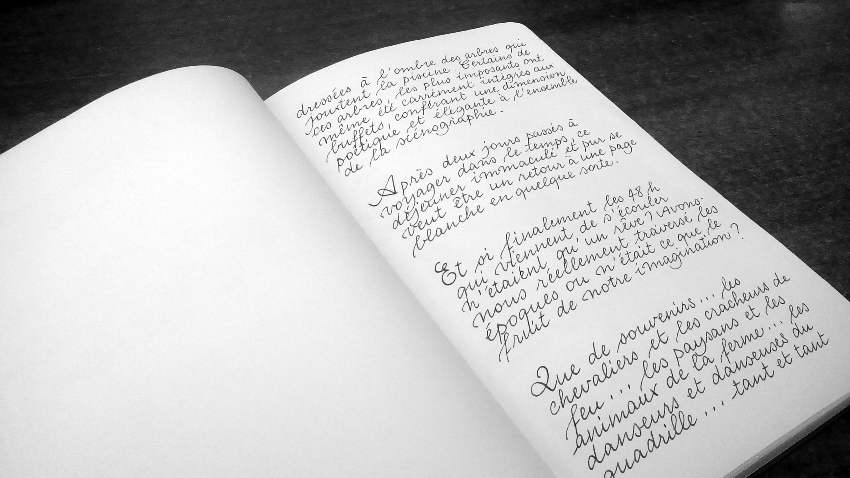 dressées à l'ombre des arbres qui
jouxtent la piscine. Certains de
ces arbres, les plus imposants ont
même été carrément intégrés aux
buffets, conférant une dimension
poétique et élégante à l'ensemble
de la scénographie.
Après deux jours passés à
voyager dans le temps, ce
déjeuner immaculé et pur se
veut être un retour à une page
blanche en quelque sorte.
Et si finalement les 48 h
qui viennent de s'écouler
n'étaient qu'un rêve ? Avons-
nous réellement traversé les
époques ou n'était ce que le
fruit de notre imagination ?
Que de souvenirs... les
chevaliers et les cracheurs de
feu... les paysans et les
animaux de la ferme... les
danseurs et danseuses du
quadrille... tant et tant